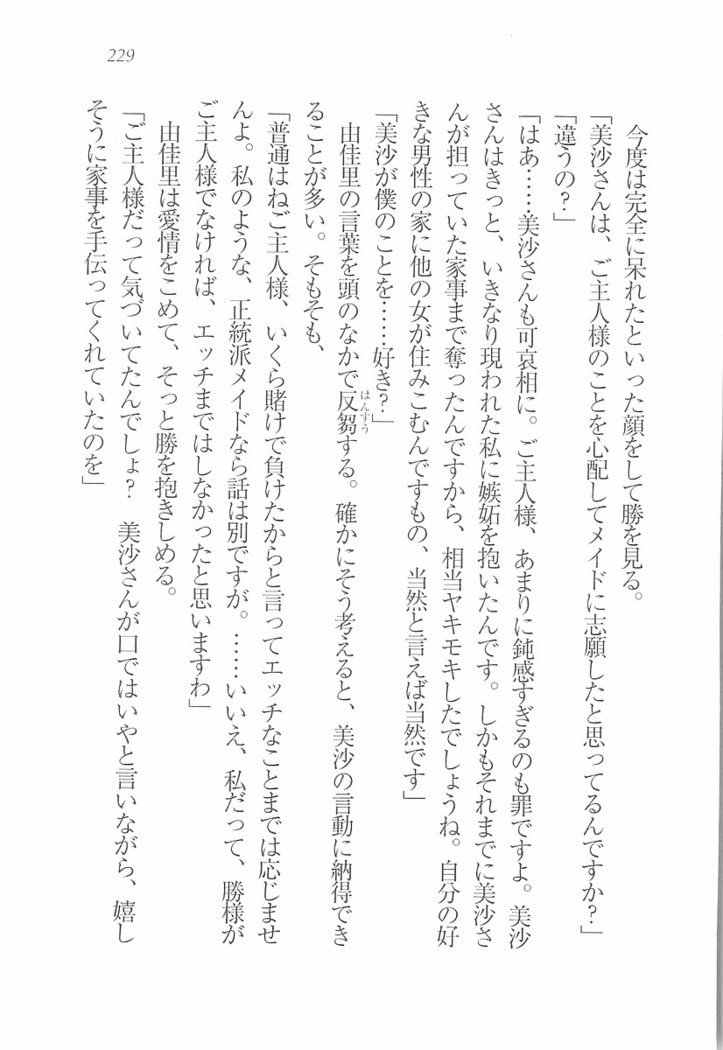 229
今度は完全に呆れたといった顔をして勝を見る。
「美沙さんは、ご主人様のことを心配してメイドに志願したと思ってるんですか？」
「違うの？」
「はあ……美沙さんも可哀相に。ご主人様、あまりに鈍感すぎるのも罪ですよ。美沙
さんはきっと、いきなり現われた私に嫉妬を抱いたんです。しかもそれまでに美沙さ
んが担っていた家事まで奪ったんですから、相当ヤキモキしたでしょうね。自分の好
きな男性の家に他の女が住みこむんですもの、当然と言えば当然です」
「美沙が僕のことを……好き？」
由佳里の言葉を頭のなかで反芻する。確かにそう考えると、美沙の言動に納得でき
はんすう
ることが多い。そもそも、
「普通はねご主人様、いくら賭けで負けたからと言ってエッチなことまでは応じませ
んよ。私のような、正統派メイドなら話は別ですが。……いいえ、私だって、勝様が
ご主人様でなければ、エッチまではしなかったと思いますわ」
由佳里は愛情をこめて、そっと勝を抱きしめる。
「ご主人様だって気づいてたんでしょ？　美沙さんが口ではいやと言いながら、嬉し
そうに家事を手伝ってくれていたのを」